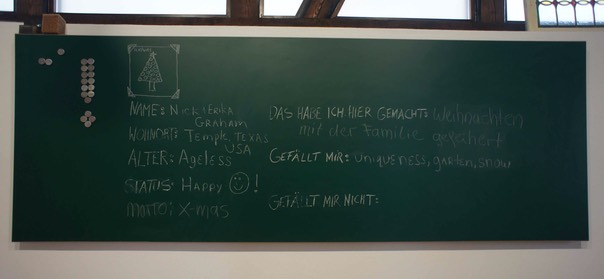 NAME: Nick & Erika
Graham
WOHNORT: Temple, Texas
USA
ALTER: Ageless
STATUS: Happy ☺!
MOTTO: X-mas
DAS HABE ICH HIER GEMACHT: Weihnachten
mit der Familie gefeiert
GEFÄLLT MIR: uniqueness, garten, snow
GEFÄLLT MIR NICHT: